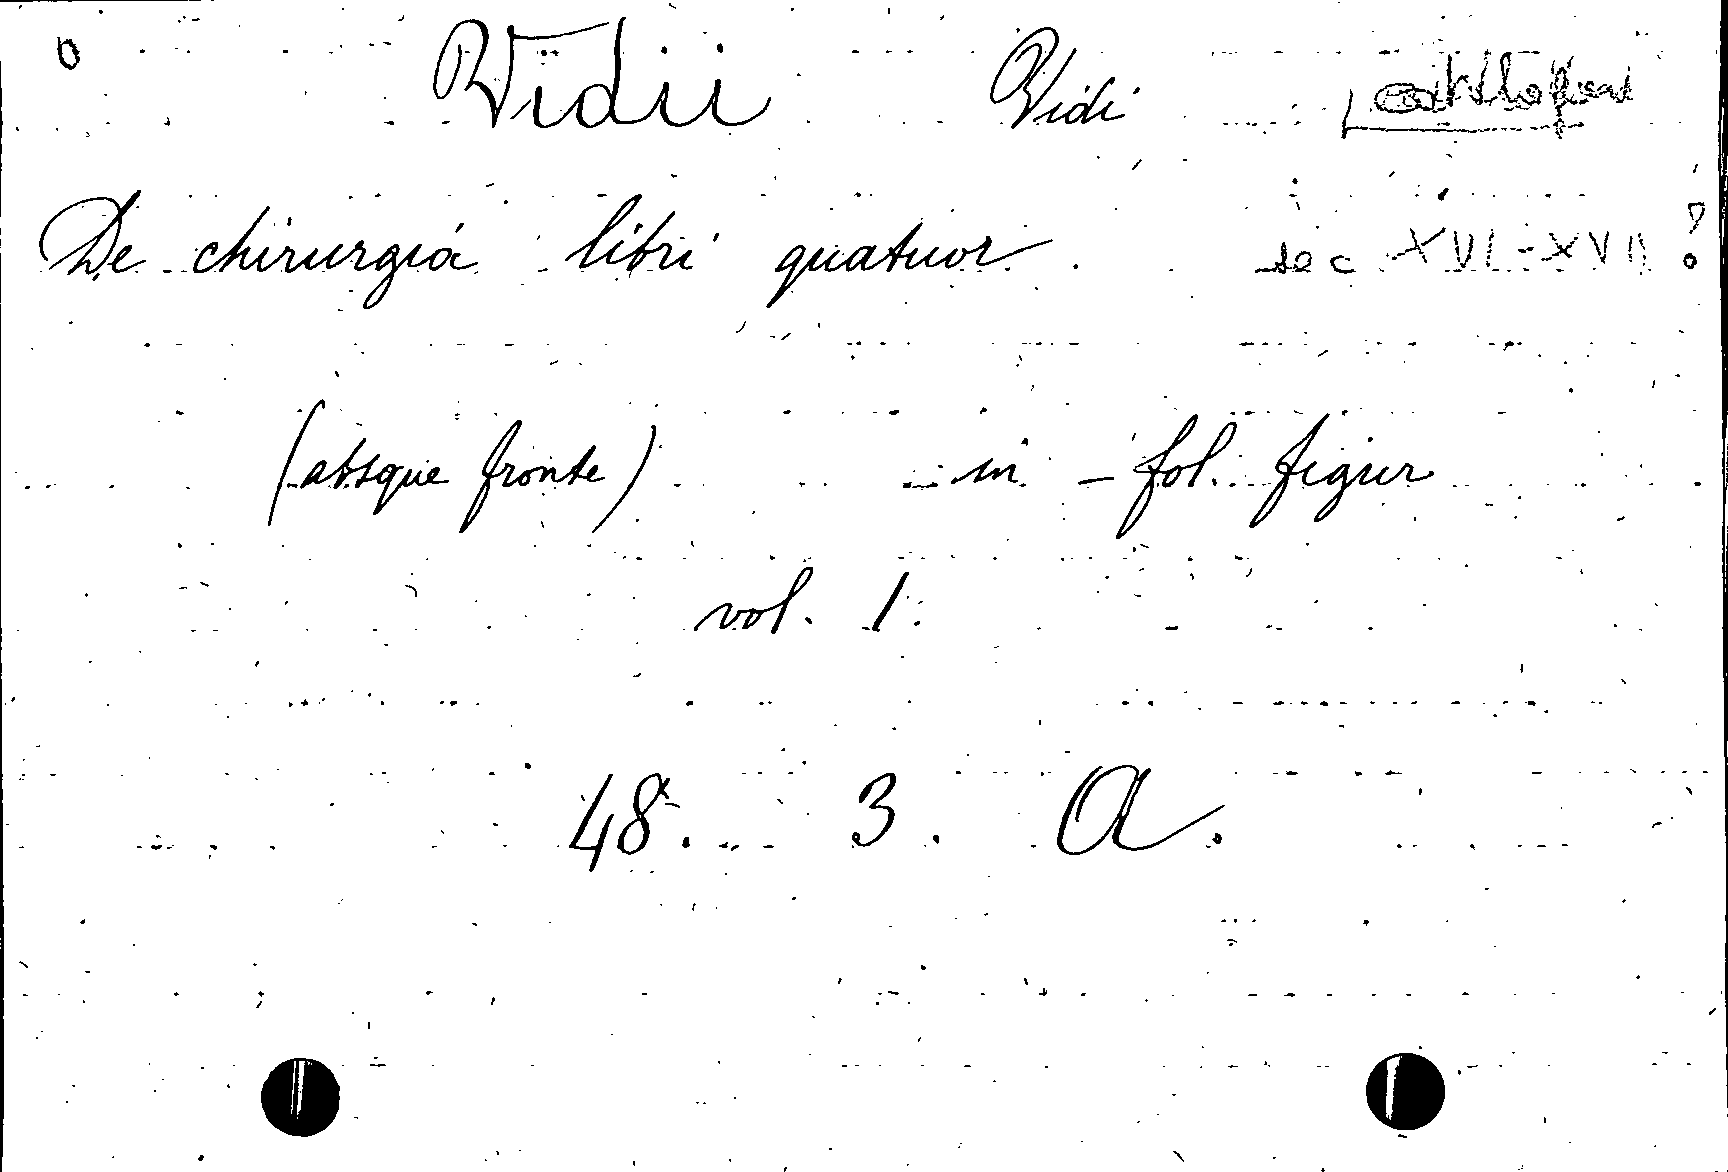 Vidii Vidi
De chirurgiâ libri quatuor. sec XVI-XVII?
(absque fronte) in - fol. figur
vol. 1.
48. 3. A.